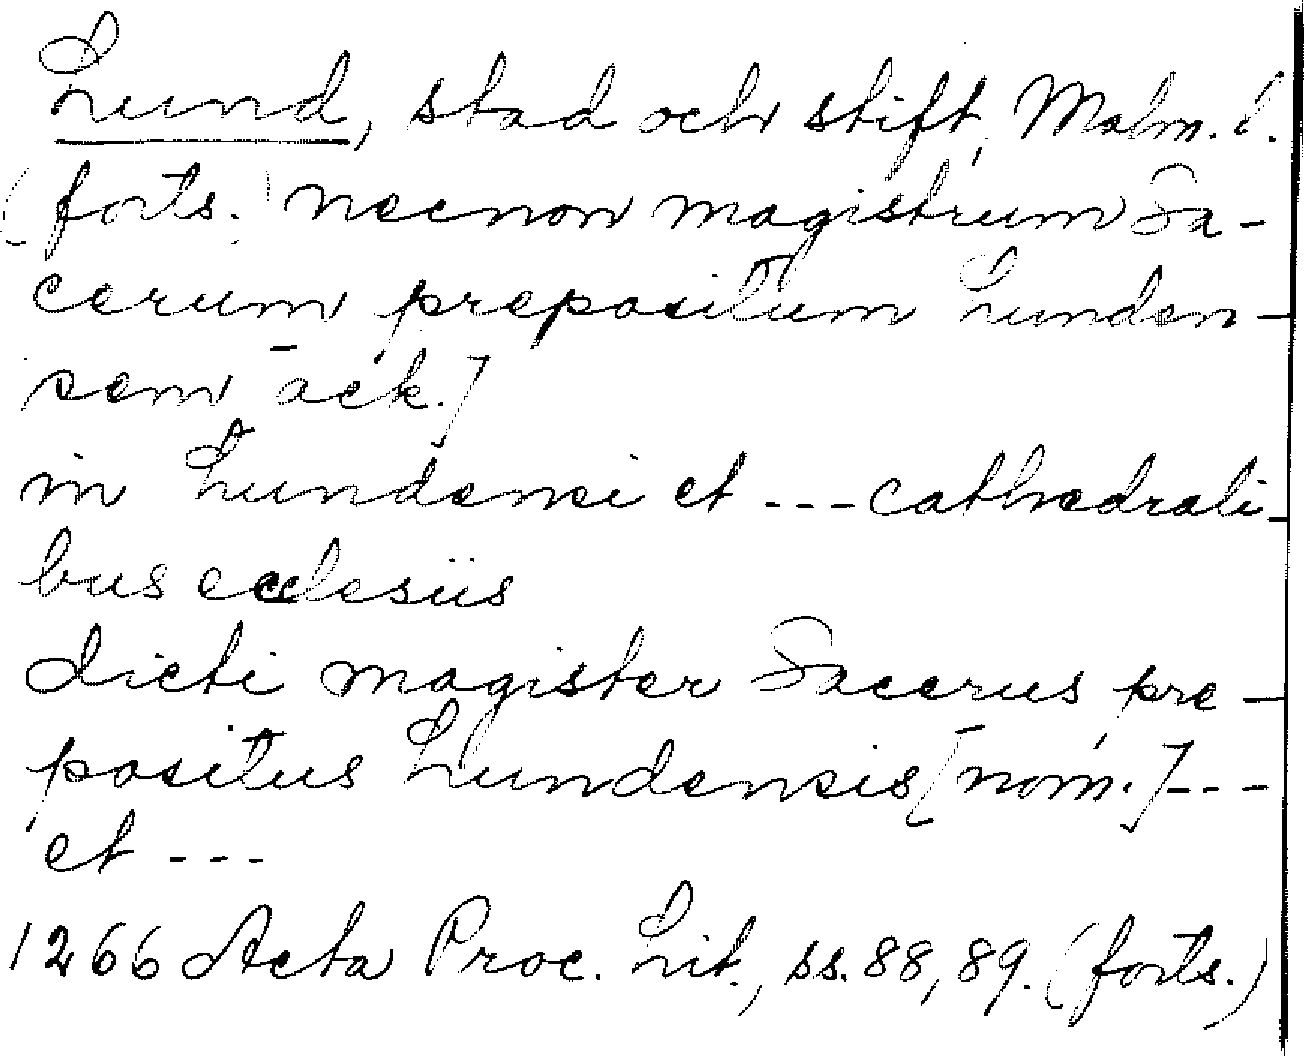 Lund, stad och stift, Malm. l.
(forts.) necnon magistrum Ja-
cerum prepositum Lunden-
sem ack.]
in Lundensi et --- cathedrali-
bus ecclesiis
dicti magister Jacerus pre-
positus Lundensis [nom.] ---
et ---
1266 Acta Proc. Lit., ss. 88, 89. (forts.)